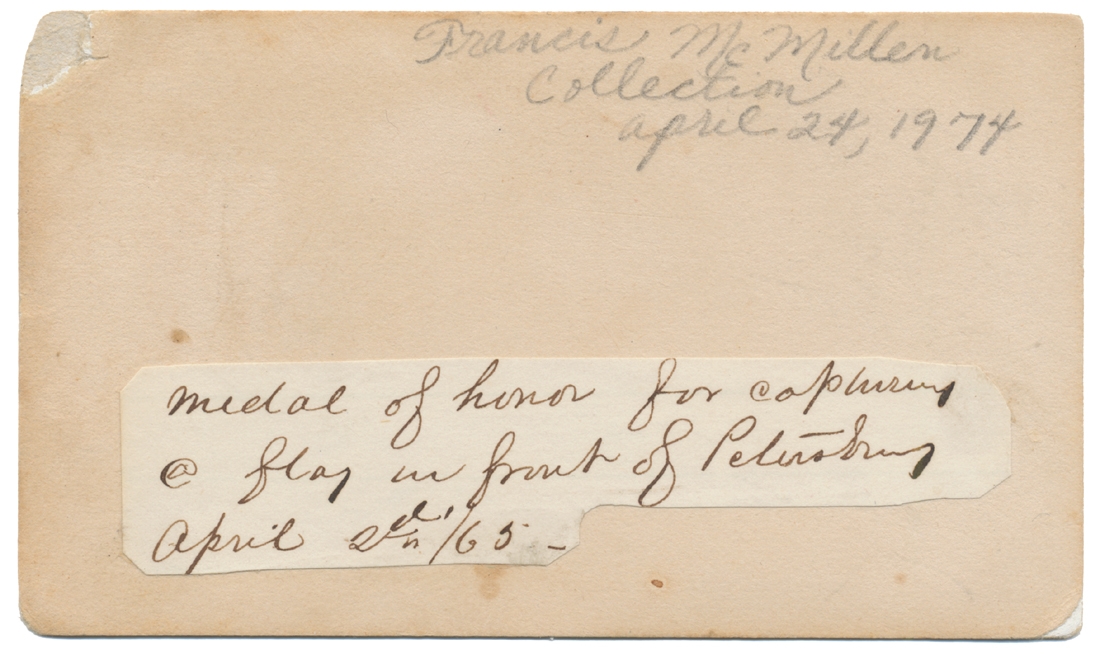 Francis McMillen
Collection
April 24, 1974
medal of honor for capturing
a flag in front of Petersburg
April 2d /65 -